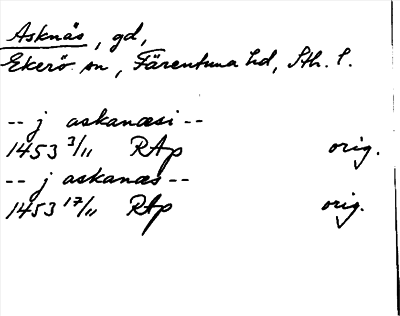 Asknäs, gd,
Ekerö sn, Färentuna hd, Sth. l.
-- j askanæsi --
1453 3/11 RAp orig.
-- j askanæs --
1453 17/11 RAp orig.